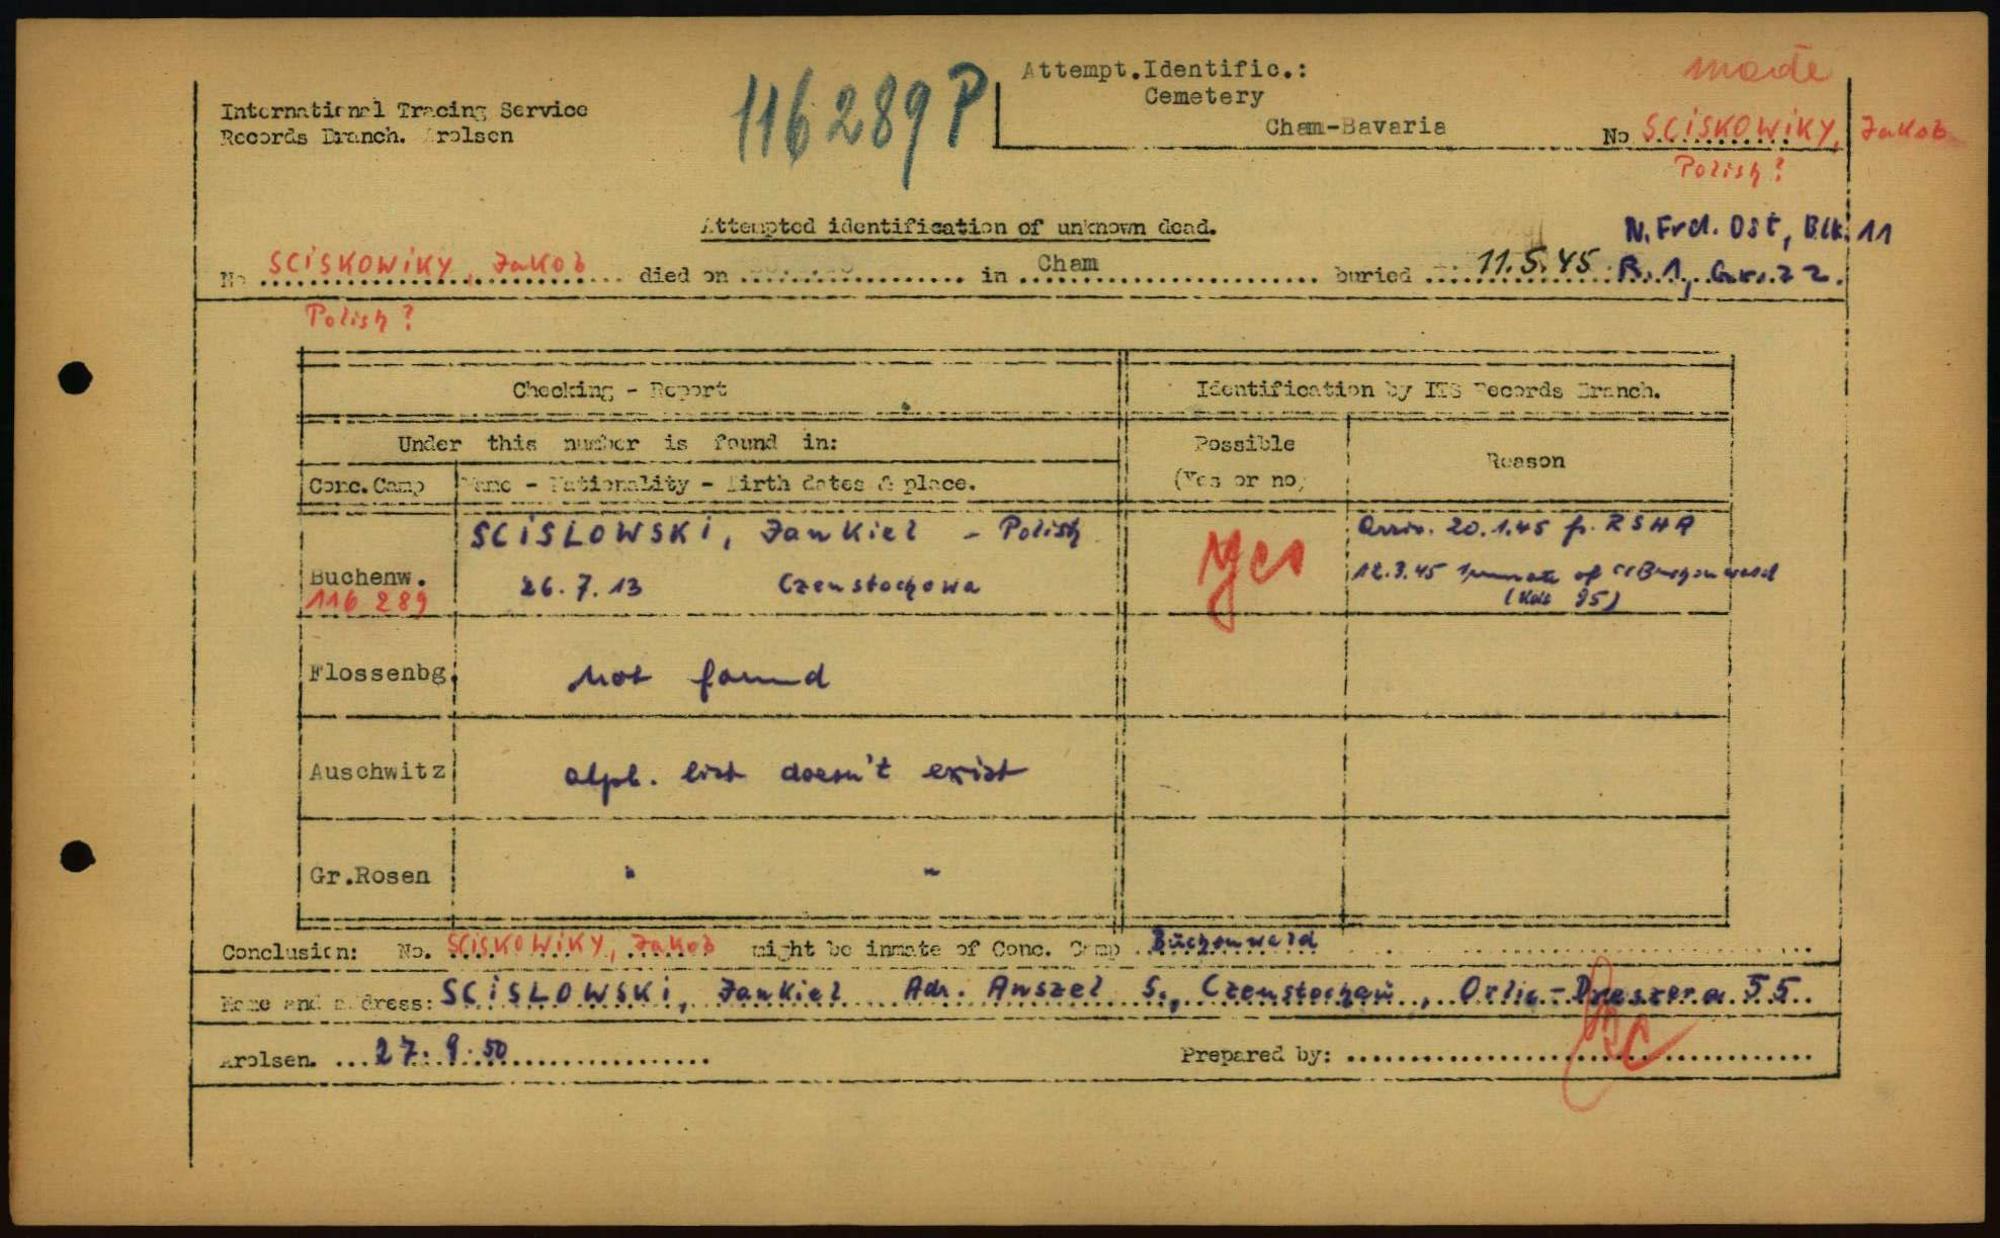 116289 P
made
Attempt.Identific.:
Cemetery
Cham-Bavaria
No SCISKOWIKY, Jakob
Polish?
International Tracing Service
Records Branch. Arolsen
Attempted identification of unknown dead.
N. Frd. Ost, Blk. 11
No SCISKOWIKY, Jakob died on in Cham buried 11.5.45 R. 1, Gr. 22.
Polish?
Checking - Report Identification by ITS Records Branch.
Under this number is found in: Possible (Yes or no) Reason
Conc.Camp Name - Nationality - Birth dates & place.
SCISLOWSKI, Jankiel - Polish
Buchenw. 26.7.13 Czenstochowa
116 289
yes
Arriv. 20.1.45 fr. RSHA
12.3.45 inmate of CC Buchenwald
Flossenbg. not found
Auschwitz alph. list doesn't exist
Gr.Rosen " "
Conclusion: No. SCISKOWIKY, Jakob might be inmate of Conc. Camp Buchenwald
Name and address: SCISLOWSKI, Jankiel Adr. Anszel S., Czenstochau, Orlic-Dreszera 55.
Arolsen. 27.9.50 Prepared by: